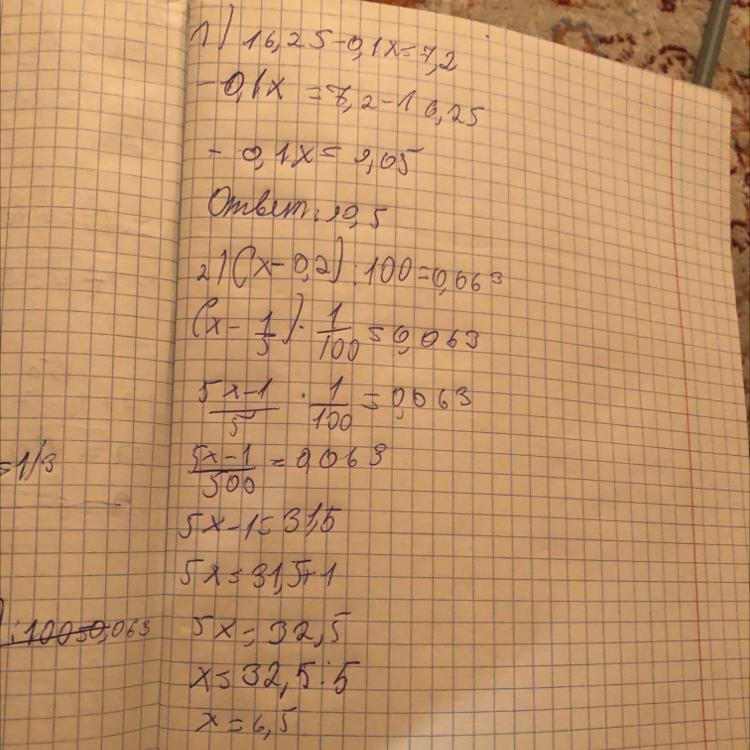 1) 16,25-0,1x=7,2
-0,1x =7,2-16,25
- 0,1x= 9,05
Ответ: 90,5
2) (x-0,2):100=0,063
(x-1/5)·1/100=0,063
5x-1/5 · 1/100 =0,063
5x-1/500 =0,063
5x-1=31,5
5x=31,5+1
5x=32,5
x=32,5:5
x=6,5
=1/3
):100=0,063